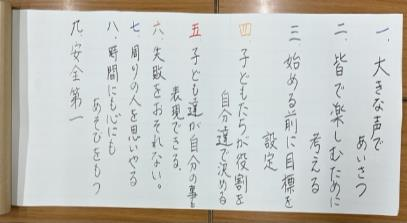 一、大きな声で
あいさつ
二、皆で楽しむために
考える
三、始める前に目標を
設定
四、子どもたちが役割を
自分達で決める
五、子ども達が自分の事を
表現できる。
六、失敗をおそれない。
七、周りの人を思いやる
八、時間にも心にも
あそびをもつ
九、安全第一